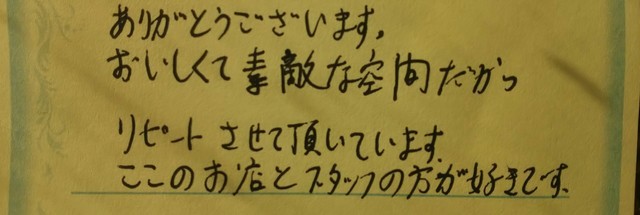 ありがとうございます。
おいしくて素敵な空間だから
リピートさせて頂いています。
ここのお店とスタッフの方が好きです。